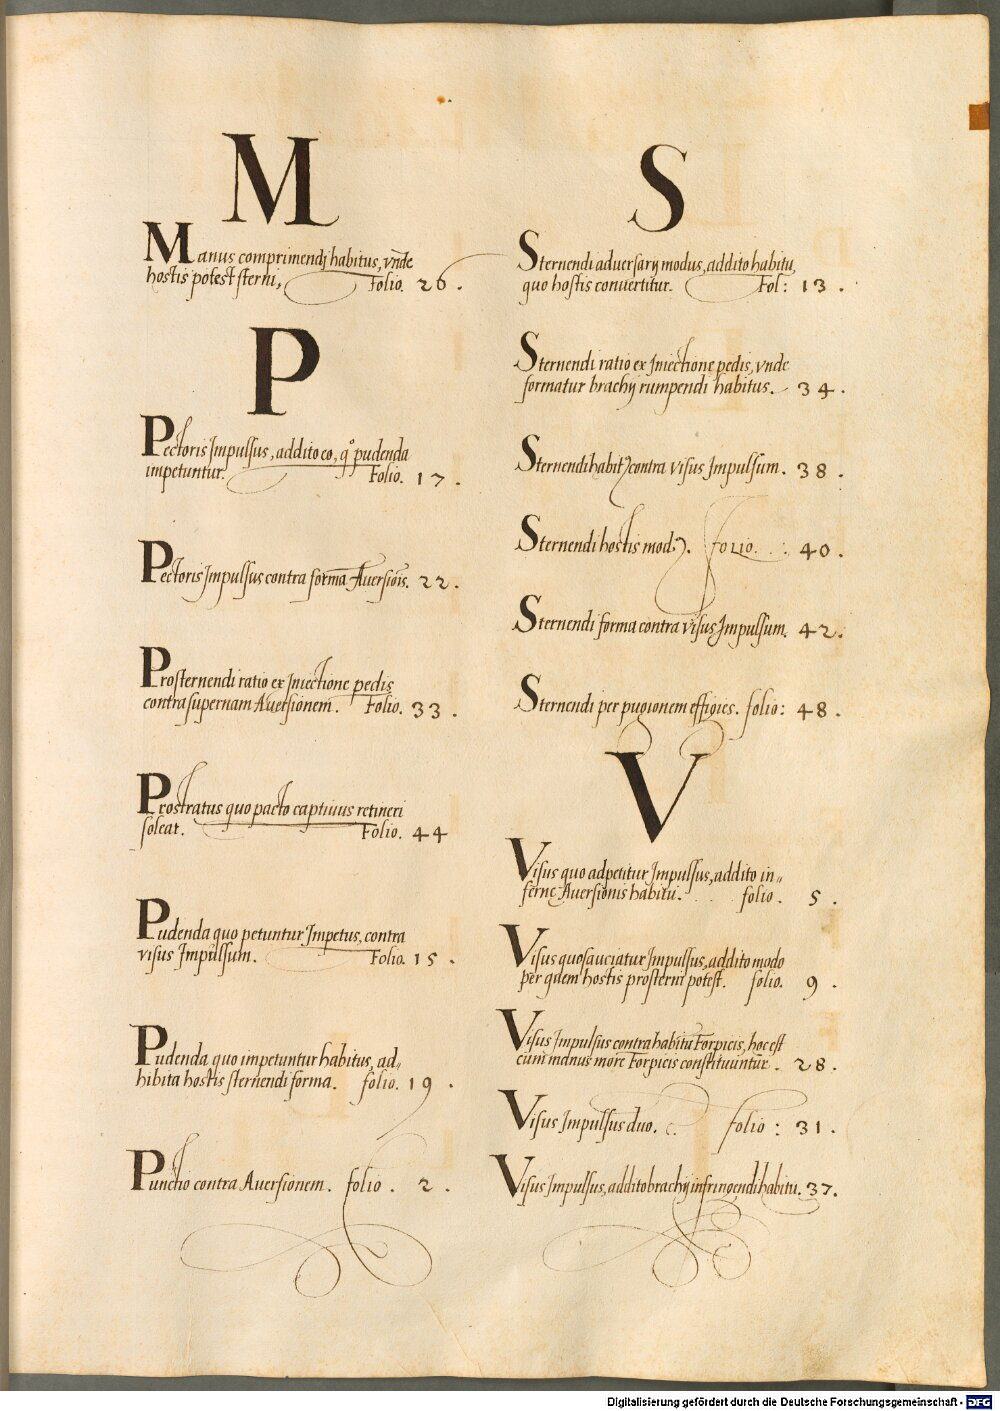 M
Manus comprimendj habitus, vnde
hostis potest sterni, Folio. 26.
P
Pectoris Impulsus, addito eo, qº pudenda
impetuntur. Folio. 17.
Pectoris Impulsus contra formā Auersiōis. 22.
Prosternendi ratio ex Iniectione pedis
contra supernam Auersionem. Folio. 33.
Prostratus quo pacto captiuus retineri
soleat. Folio. 44
Pudenda quo petuntur Impetus, contra
visus Impulsum. Folio. 15.
Pudenda quo impetuntur habitus, ad-
hibita hostis sternendi forma. folio. 19.
Punctio contra Auersionem. folio. 2.
S
Sternendi aduersarij modus, addito habitu,
quo hostis conuertitur. Fol: 13.
Sternendi ratio ex Iniectione pedis, vnde
formatur brachij rumpendi habitus. 34.
Sternendi habitꝰ contra visus Impulsum. 38.
Sternendi hostis modꝰ. folio. 40.
Sternendi forma contra visus Impulsum. 42.
Sternendi per pugionem effigies. folio: 48.
V
Visus quo adpetitur Impulsus, addito in„
fernę Auersionis habitu. folio. 5.
Visus quo sauciatur Impulsus, addito modo
per quem hostis prosterni potest. folio. 9.
Visus Impulsus contra habitū Forpicis, hoc est
cum manus more Forpicis constituuntur. 28.
Visus Impulsus duo. folio: 31.
Visus Impulsus, addito brachij infringendi habitu. 37.
Digitalisierung gefördert durch die Deutsche Forschungsgemeinschaft - DFG